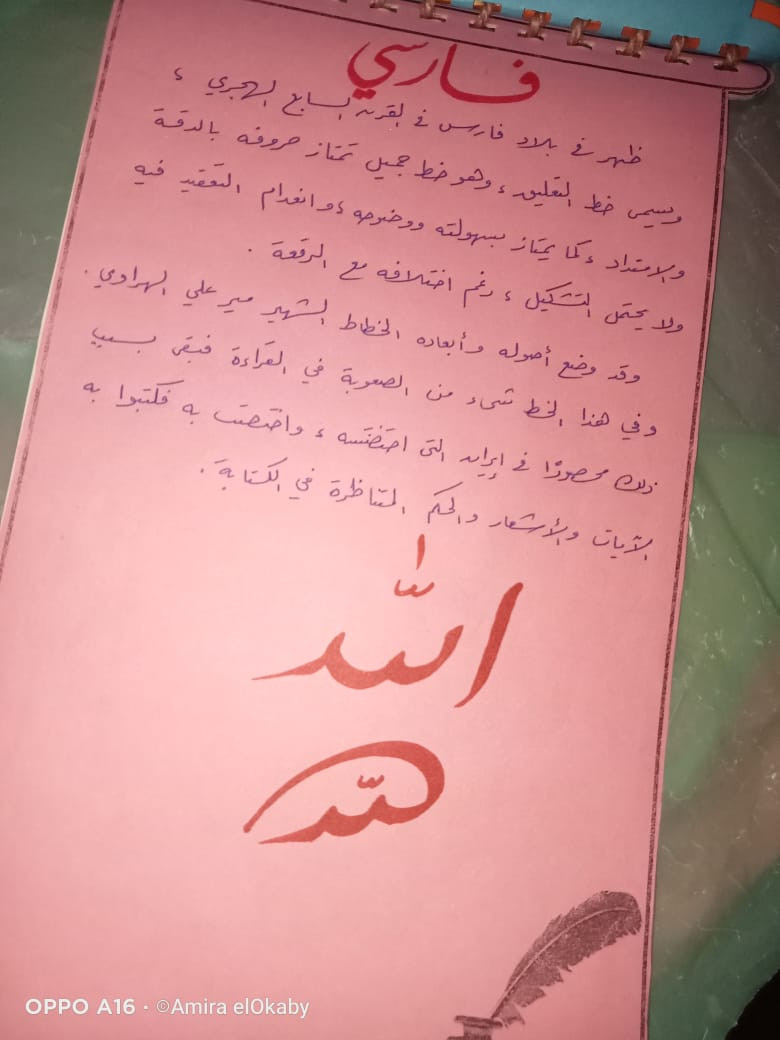 فارسي
ظهر في بلاد فارس في القرن السابع الهجري ،
ويسمى خط التعليق ، وهو خط جميل تمتاز حروفه بالدقة
والامتداد ، كما يمتاز بسهولته ووضوحه ، وانعدام التعقيد فيه
ولا يحتمل التشكيل ، رغم اختلافه مع الرقعة .
وقد وضع أصوله وأبعاده الخطاط الشهير مير علي الهراوي .
وفي هذا الخط شيء من الصعوبة في القراءة فبقى بسبب
ذلك محصورًا في إيران التى احتضنته ، واختصت به فكتبوا به
الآيات والأشعار والحكم المتناظرة في الكتابة .
الله
لله
OPPO A16 · ©Amira elOkaby